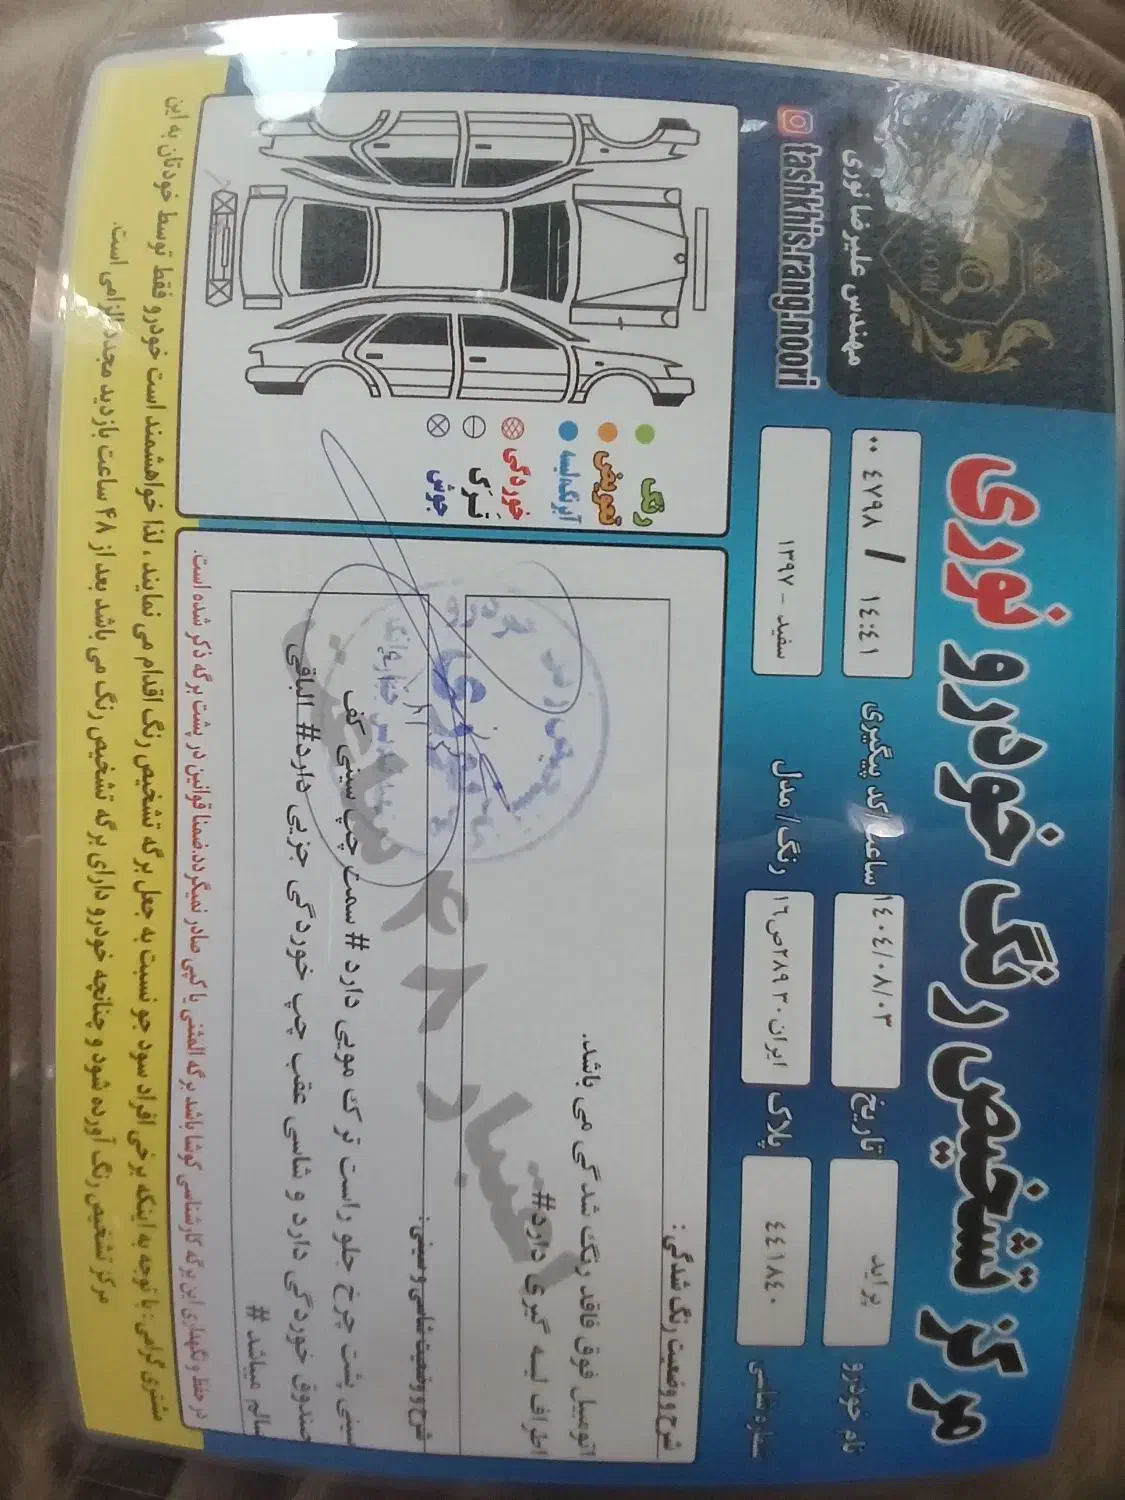 مرکز تشخیص رنگ خودرو نوری
مهندس علیرضا نوری
tashkhis.rang.noori
نام خودرو
پراید
تاریخ
١٤٠٤/٠٨/٠٣
ساعت / کد پیگیری
١٤:٤١ / ٤٧٩٨ ٠٠
شماره شاسی
٤٤١٨٤٠
پلاک
ایران ٣٠ ٢٨٩ص١٦
رنگ / مدل
سفید - ١٣٩٧
رنگ
تعویض
آبرنگ لیسه
خوردگی
تَرَک
جوش
شرح و وضعیت رنگ شدگی :
اتومبیل فوق فاقد رنگ شدگی می باشد.
اطراف لیسه گیری دارد#
شرح و وضعیت شاسی و سینی:
سینی پشت چرخ جلو راست ترک مویی دارد# سمت چپ سینی کف
صندوق خوردگی دارد و شاسی عقب چپ خوردگی جزیی دارد# الباقی
سالم میباشد #
اعتبار ۴۸ ساعت
در حفظ و نگهداری این برگه کارشناسی کوشا باشد برگه المثنی یا کپی صادر نمیگردد.ضمنا قوانین در پشت برگه ذکر شده است.
مشتری گرامی : با توجه به اینکه برخی افراد سود جو نسبت به جعل برگه تشخیص رنگ اقدام می نمایند ، لذا خواهشمند است خودرو فقط توسط خودتان به این
مرکز تشخیص رنگ آورده شود و چنانچه خودرو دارای برگه تشخیص رنگ می باشد بعد از ۴۸ ساعت بازدید مجدد الزامی است.